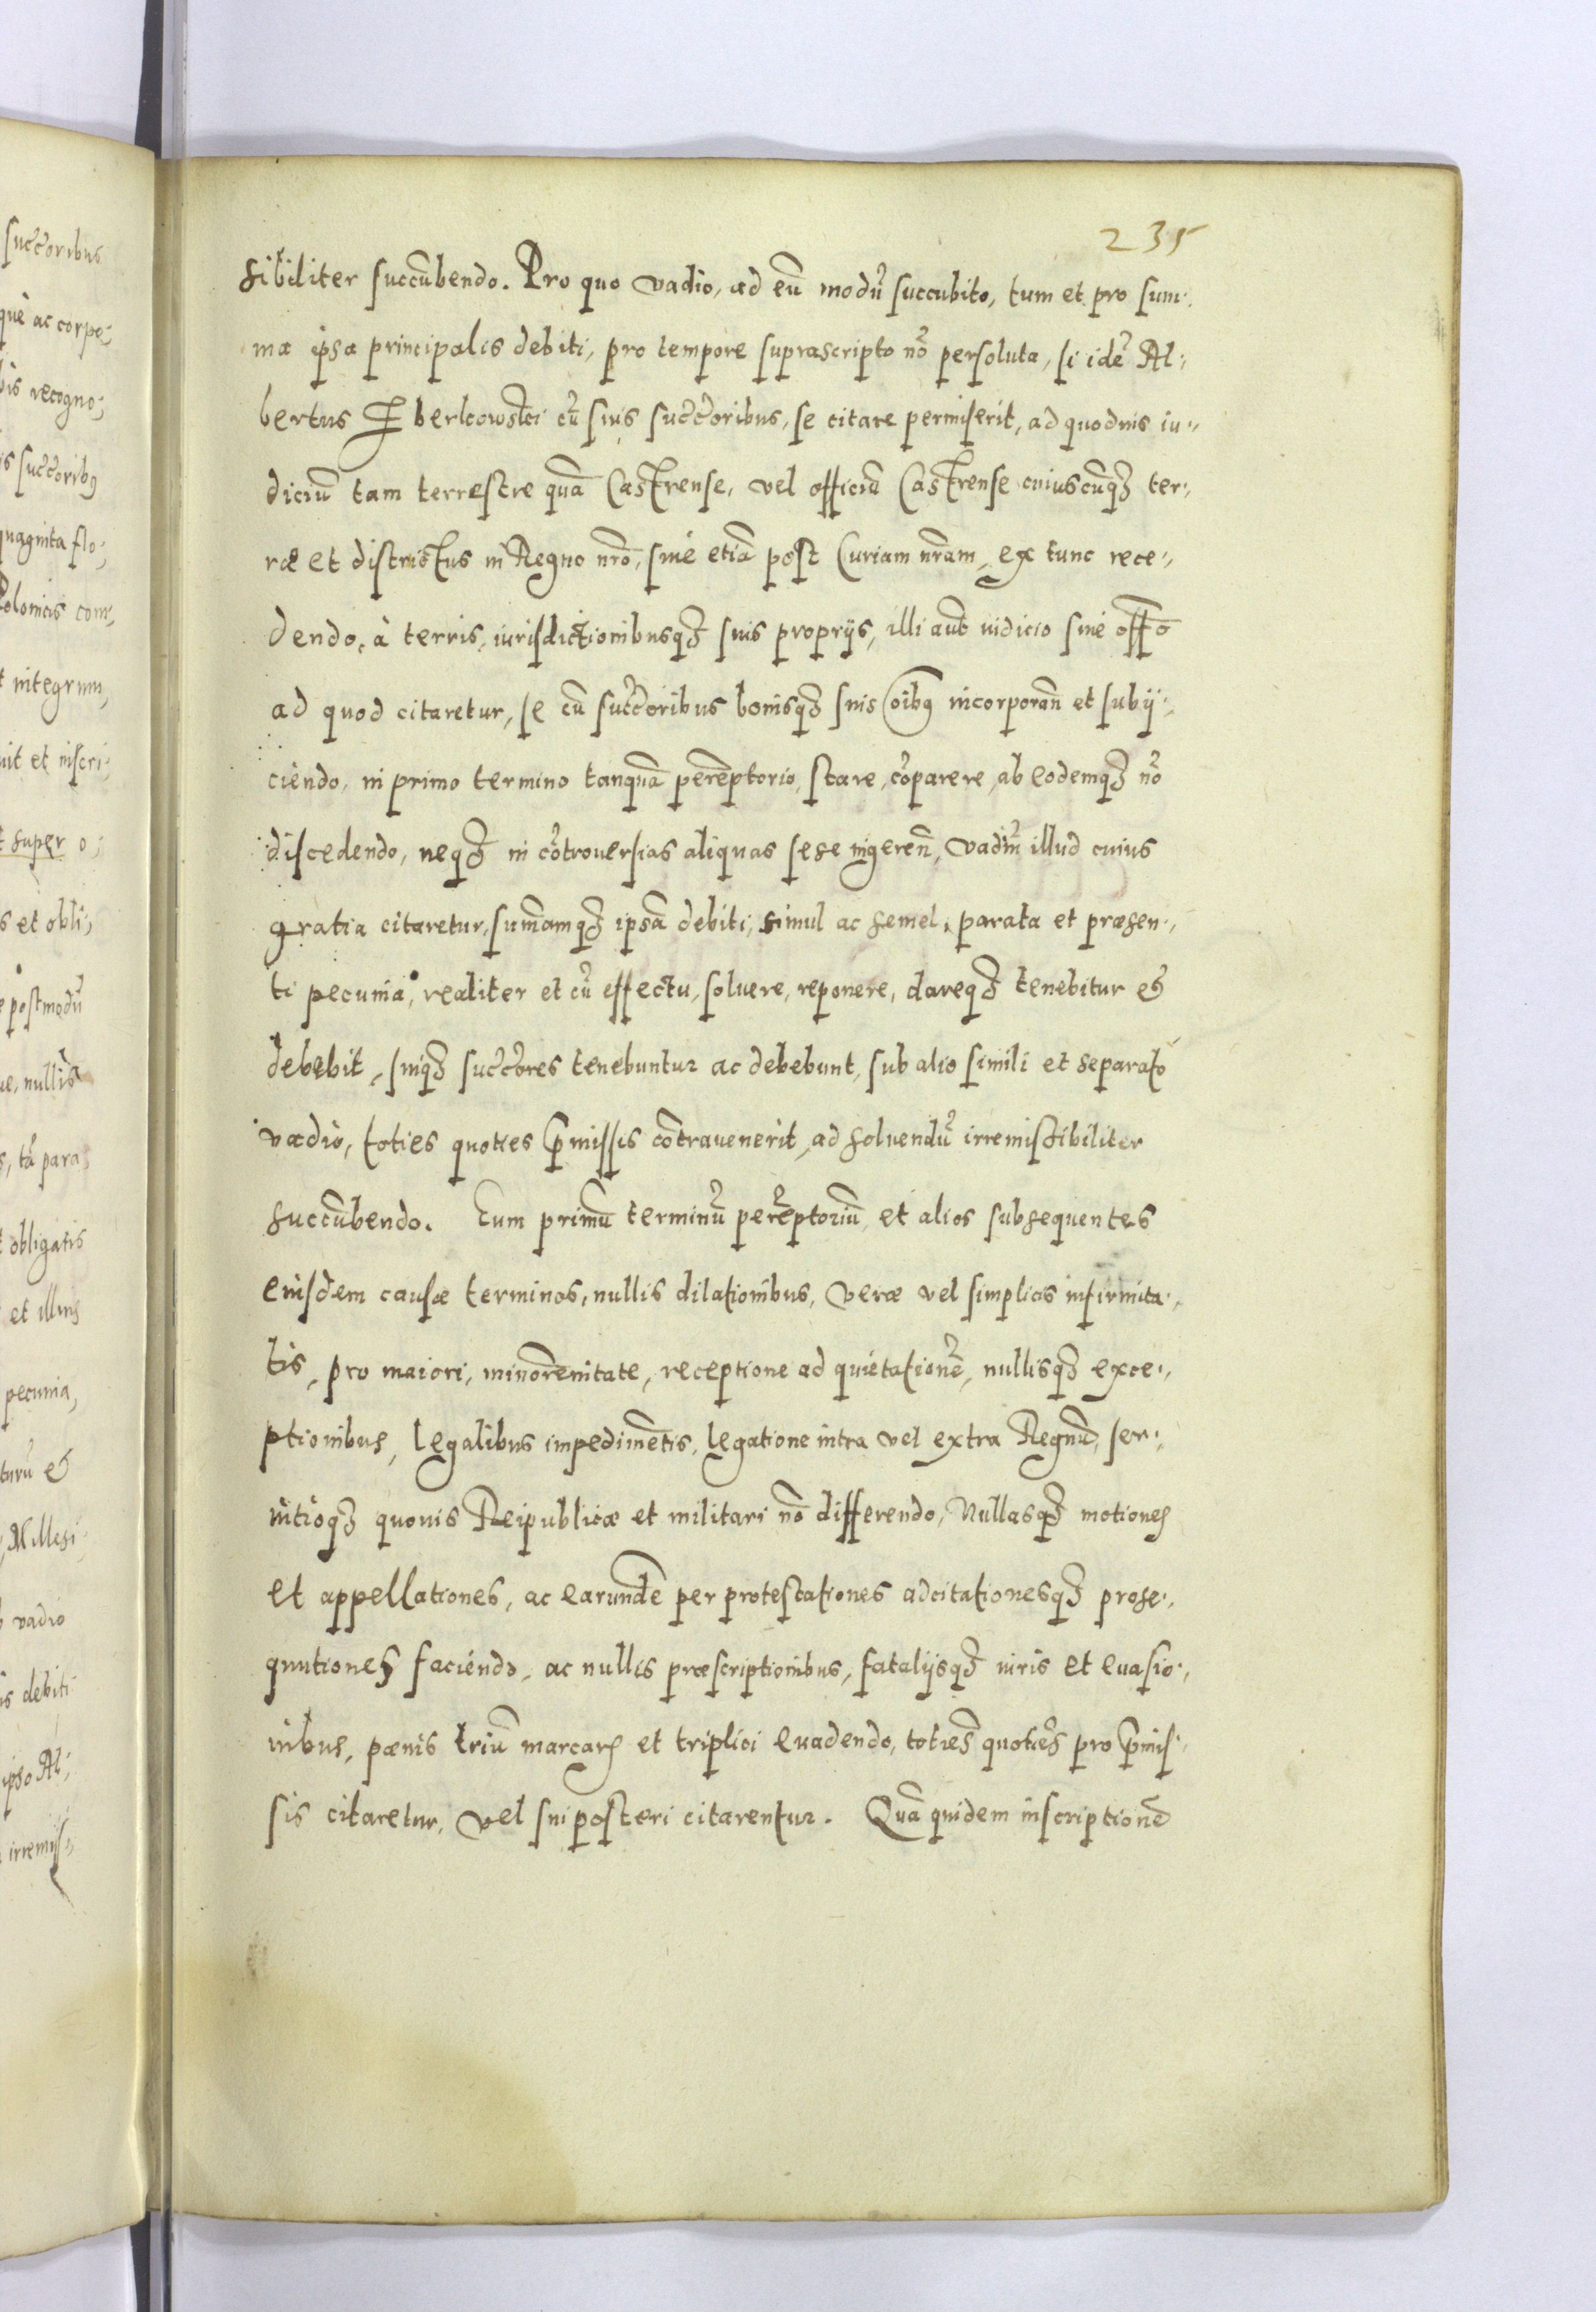 235
sibiliter succūbendo. Pro quo vadio, ad eū modū succubito, tum et pro sum:
ma ipsa principalis debiti, pro tempore suprascripto nō persoluta, si idē Al:
bertus cū suis succ̄oribus, se citare permiserit, ad quoduis iu:
diciū tam terrestre quā Castrense, vel officiū Castrense cuiuscūq₃ ter:
ræ et districtus in Regno nr̄o, siue etiā post Curiam nr̄am, ex tunc rece:
dendo, à terris, iurisdictionibusq₃ suis proprijs, illi aūt iudicio siue off̄o
ad quod citaretur, se cū succ̄oribus bonisq₃ suis oīb9 incorporan̄ et subij:
ciendo, in primo termino tanquā perēptorio, stare, cōparere, ab eodemq₃ nō
discedendo, neq₃ in cōtrouersias aliquas sese ingeren̄, vadiū illud cuius
gratia citaretur, sum̄amq₃ ipsā debiti, simul ac semel, parata et præsen:
ti pecunia, realiter et cū effectu, soluere, reponere, dareq₃ tenebitur &
debebit, suiq₃ succ̄ores tenebuntur ac debebunt, sub alio simili et separato
vadio, toties quoties p̄missis cōtrauenerit, ad soluendū irremissibiliter
succūbendo. Eum primū terminū perēptoriū, et alios subsequentes
eiusdem causæ terminos, nullis dilationibus, veræ vel simplicis infirmita:
tis, pro maiori, minorēnitate, receptione ad quietationē, nullisq₃ exce:
ptionibus, legalibus impedimētis, legatione intra vel extra Regnū, ser:
uitioq₃ quouis Reipublicæ et militari nō differendo, Nullasq₃ motiones
et appellationes, ac earundē per protestationes adcitationesq₃ prose:
quutiones faciendo, ac nullis præscriptionibus, fatalijsq₃ iuris et euasio:
nibus, pœnis triū marcarꝝ et triplici euadendo, toties quoties pro p̄mis:
sis citaretur, vel sui posteri citarentur. Quā quidem inscriptionē